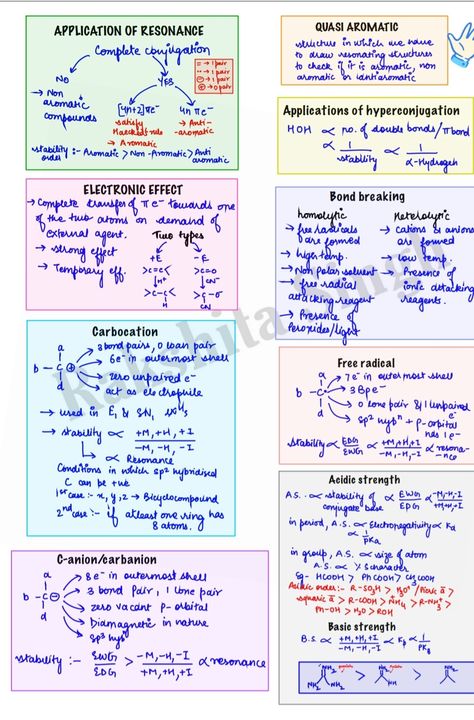 APPLICATION OF RESONANCE
Complete conjugation
= → 1 pair
- → 1 pair
⊕ → 0 pair
NO
YES
→ Non aromatic compounds
[4n+2]πe⁻
4n πe⁻
satisfy Huckel rule
→ Aromatic
→ Anti-aromatic
stability order :- Aromatic > Non-Aromatic > Anti aromatic
ELECTRONIC EFFECT
→ Complete transfer of π e⁻ towards one
of the two atoms on demand of
external agent.
→ strong effect
→ Temporary eff.
Two types
+E
-E
>C=C<
>C=O
H⁺
CN⁻
>C-C<
>C-O⁻
H
CN
Carbocation
a
b
C ⊕
d
→ 3 bond pairs, 0 loan pair
→ 6e⁻ in outermost shell
→ zero unpaired e⁻
→ act as electrophile
→ used in E₁ & SN₁
→ stability ∝ +M, +H, +I / -M, -H, -I
→ ∝ Resonance
Conditions in which sp² hybridised
C can be +ve
1st case :- x, y, z → Bicyclocompound
2nd case :- if atleast one ring has
8 atoms.
C-anion/carbanion
a
b
C ⊖
d
→ 8e⁻ in outermost shell
→ 3 bond pair, 1 lone pair
→ zero vacant p-orbital
→ Diamagnetic in nature
→ sp³ hyb
stability :- EWG / EDG > -M, -H, -I / +M, +H, +I ∝ resonance
QUASI AROMATIC
structure in which we have
to draw resonating structures
to check if it is aromatic, non
aromatic or antiaromatic
Applications of hyperconjugation
HOH ∝ no. of double bonds/π bond
∝ 1/stability ∝ 1/α-Hydrogen
Bond breaking
homolytic
→ free radicals are formed
→ high temp.
→ Non Polar solvent
→ free radical attacking reagent
→ Presence of Peroxides/light
Heterolytic
→ cations & anions are formed
→ low temp.
→ Presence of ionic attacking reagents.
Free radical
a
b
C
d
→ 7e⁻ in outermost shell
→ 3 Bp e⁻
→ 0 lone pair & 1 unpaired e⁻
→ sp² hybⁿ + p-orbital has 1e⁻
stability ∝ EDG / EWG ∝ +M, +H, +I / -M, -H, -I ∝ resonance
Acidic strength
A.S. ∝ stability of conjugate base ∝ EWG / EDG ∝ -M, -H, -I / +M, +H, +I
in period, A.S. ∝ Electronegativity ∝ Ka
∝ 1/PKa
in group, A.S. ∝ size of atom
A.S. ∝ % s character
Eg- HCOOH > PhCOOH > CH₃COOH
Acidic order:- R-SO₃H > H₃O⁺ / Picric a >
squaric a > R-COOH > NH₄ > R-NH₃⁺ >
Ph-OH > H₂O > ROH
Basic strength
B.S. ∝ +M, +H, +I / -M, -H, -I ∝ Kb ∝ 1/PKb
NH
NH₂
NH₂
>
NH
NH₂
>
NH₂
Rakshita Singh